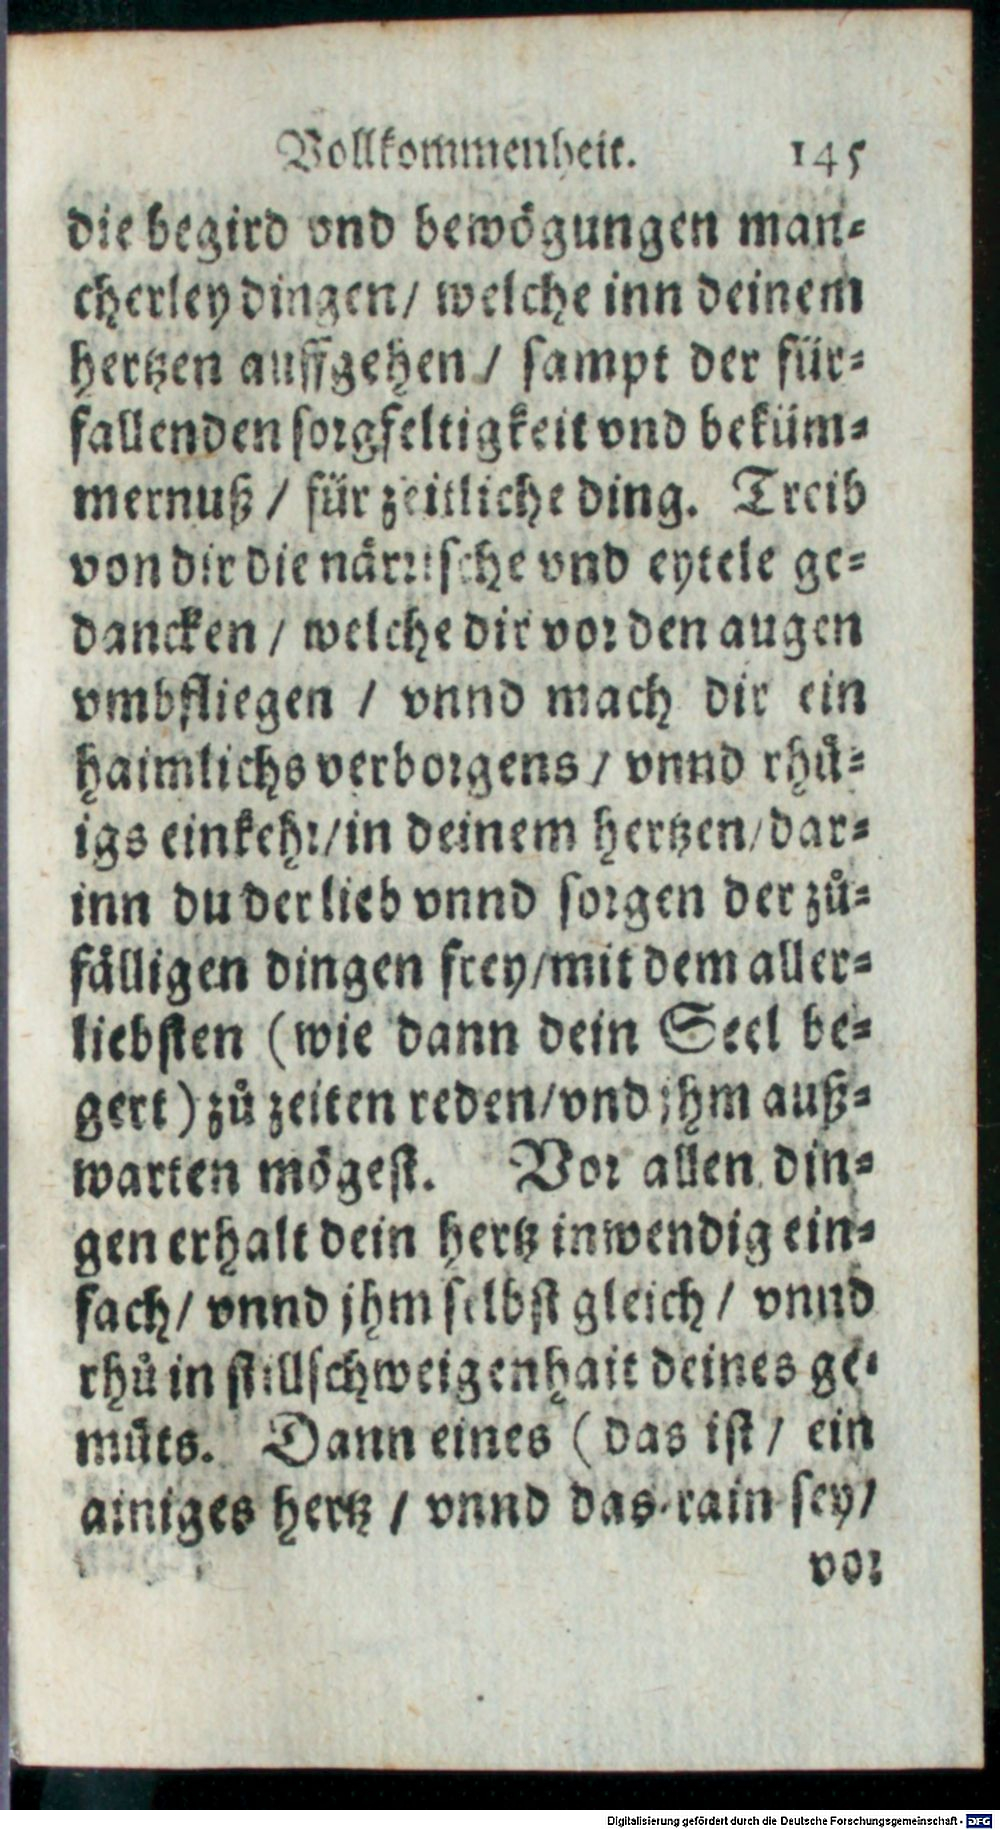 Vollkommenheit. 145
die begird vnd bewögungen man⸗
cherley dingen/ welche inn deinem
hertzen auffgehen / sampt der für⸗
fallenden sorgfeltigkeit vnd beküm⸗
mernuß / für zeitliche ding. Treib
von dir die närrische vnd eytele ge⸗
dancken / welche dir vor den augen
vmbfliegen / vnnd mach dir ein
haimlichs verborgens / vnnd rhů⸗
igs einkehr/ in deinem hertzen/ dar⸗
inn du der lieb vnnd sorgen der zů⸗
fälligen dingen frey/ mit dem aller⸗
liebsten (wie dann dein Seel be⸗
gert) zů zeiten reden/ vnd jhm auß⸗
warten mögest. Vor allen din⸗
gen erhalt dein hertz inwendig ein⸗
fach/ vnnd jhm selbst gleich / vnnd
rhů in stillschweigenhait deines ge⸗
můts. Dann eines (das ist / ein
ainiges hertz / vnnd das rain sey/
vor
Digitalisierung gefördert durch die Deutsche Forschungsgemeinschaft - DFG